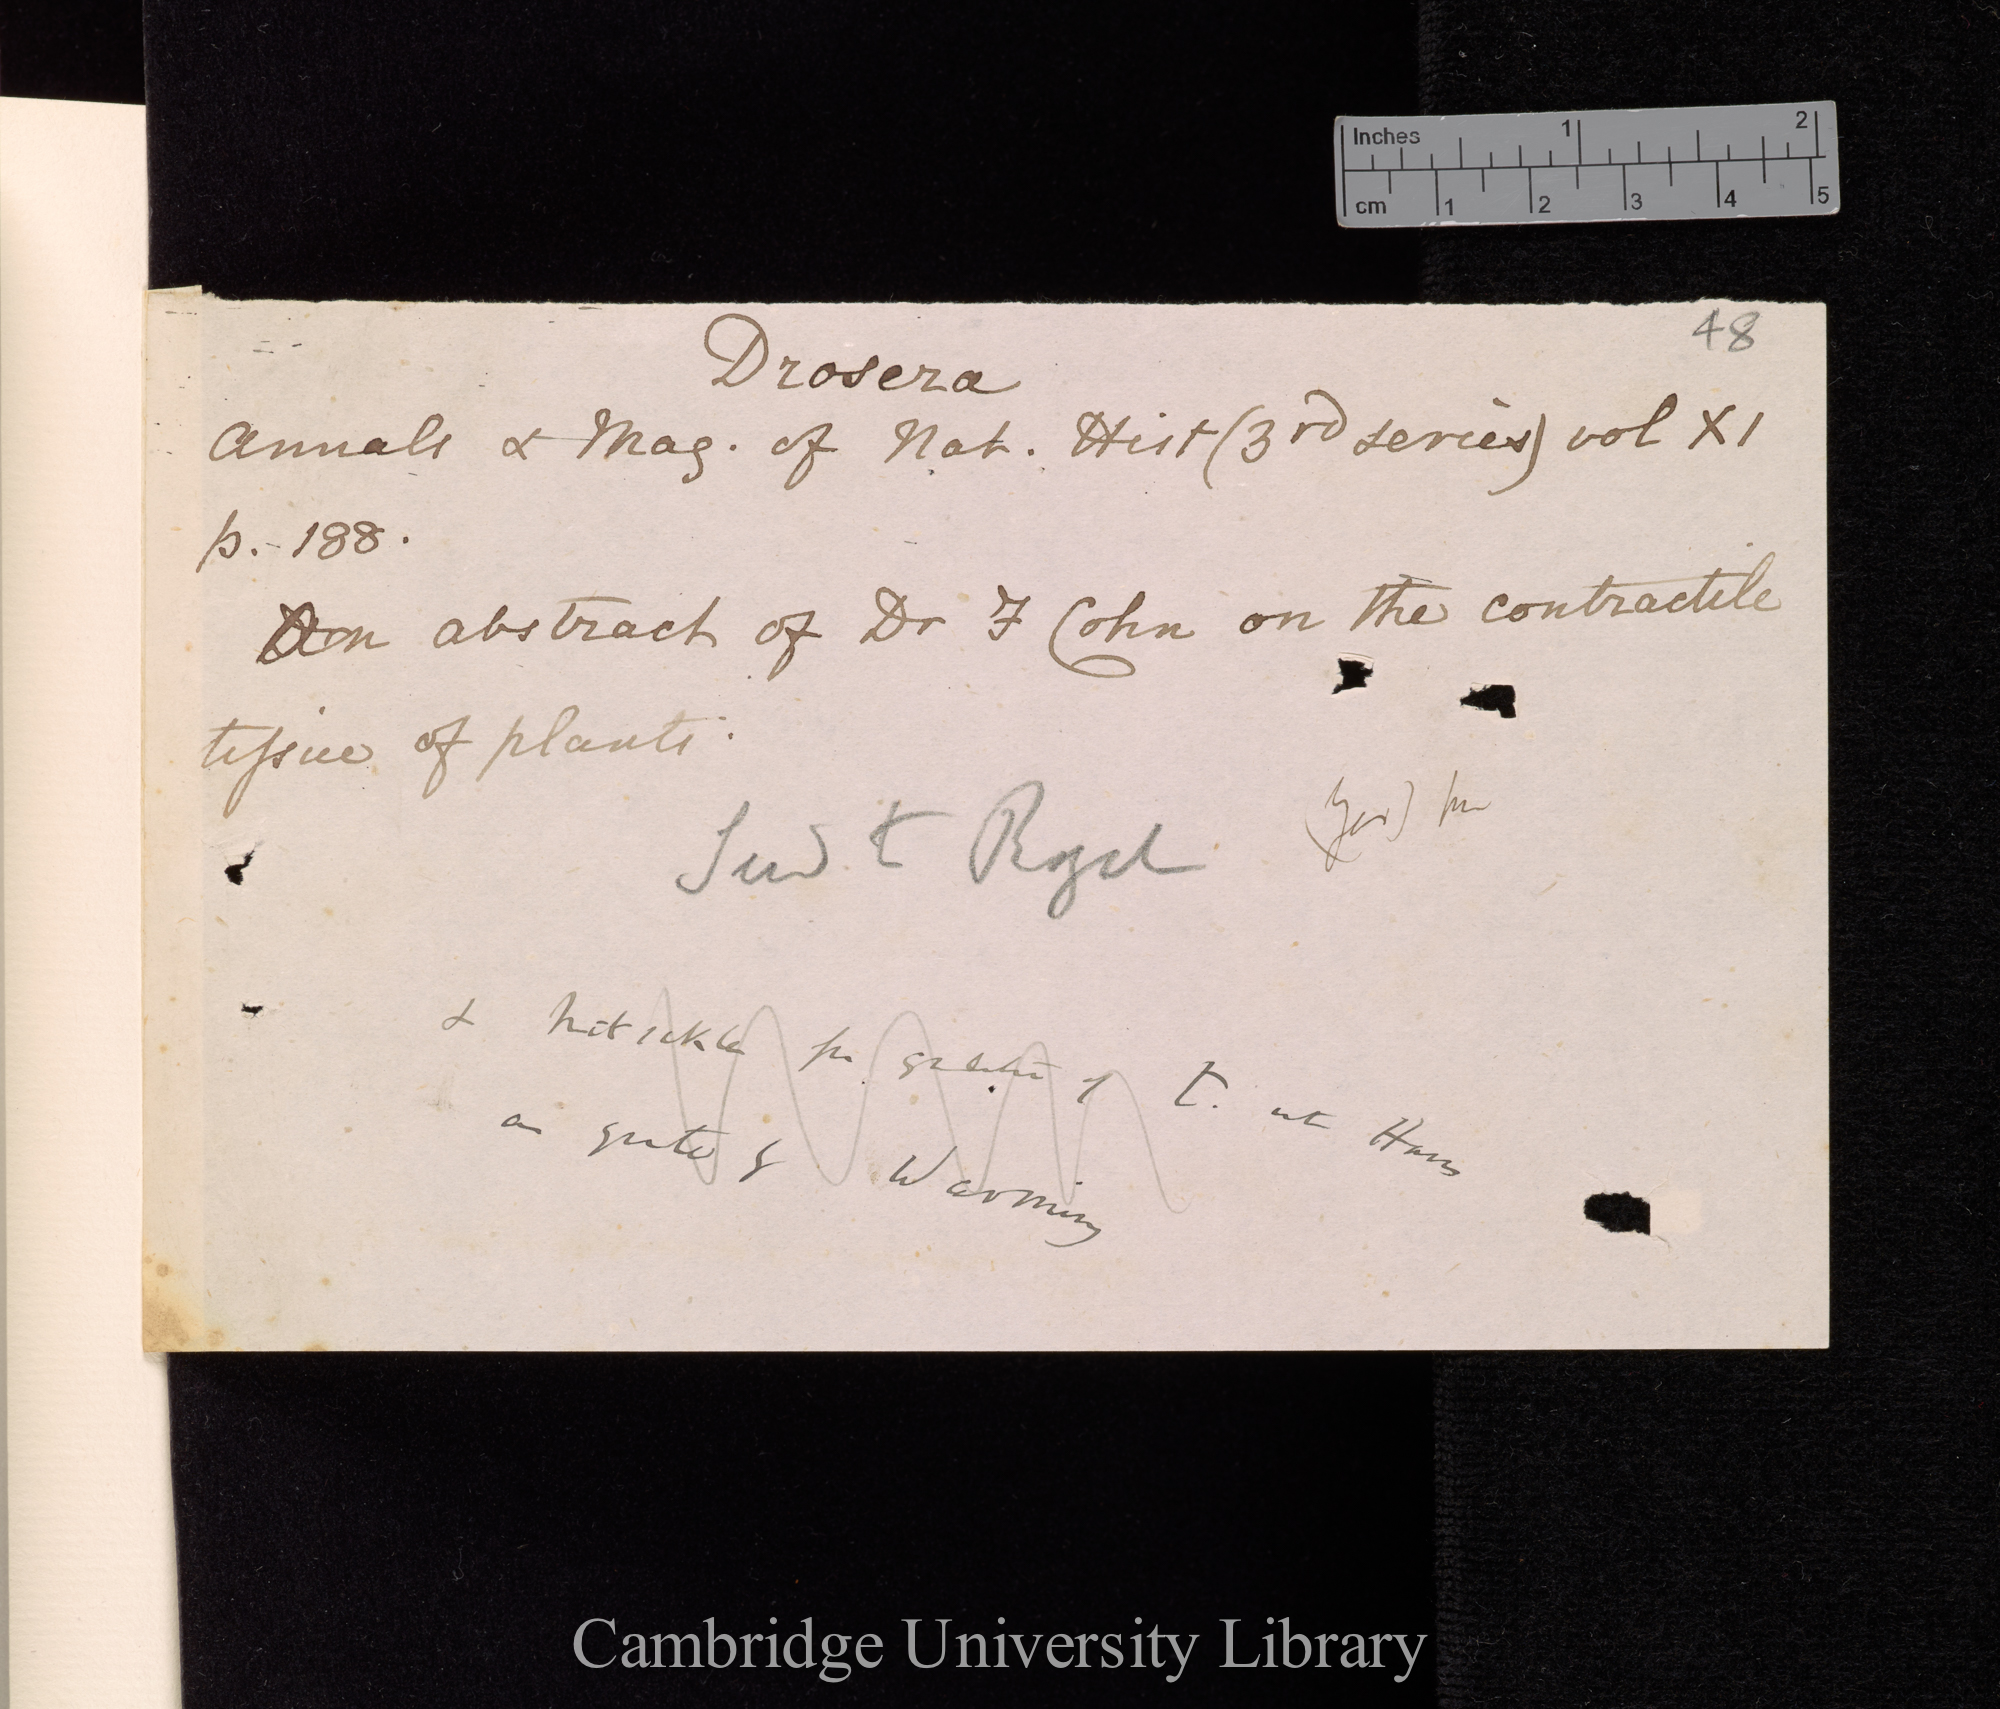 Inches 1 2
cm 1 2 3 4 5
48
Drosera
Annals & Mag. of Nat. Hist (3rd series) vol XI
p. 188.
An abstract of Dr F Cohn on the contractile
tissue of plants.
& Nitschke for of T. at
as quoted by Warming
Cambridge University Library